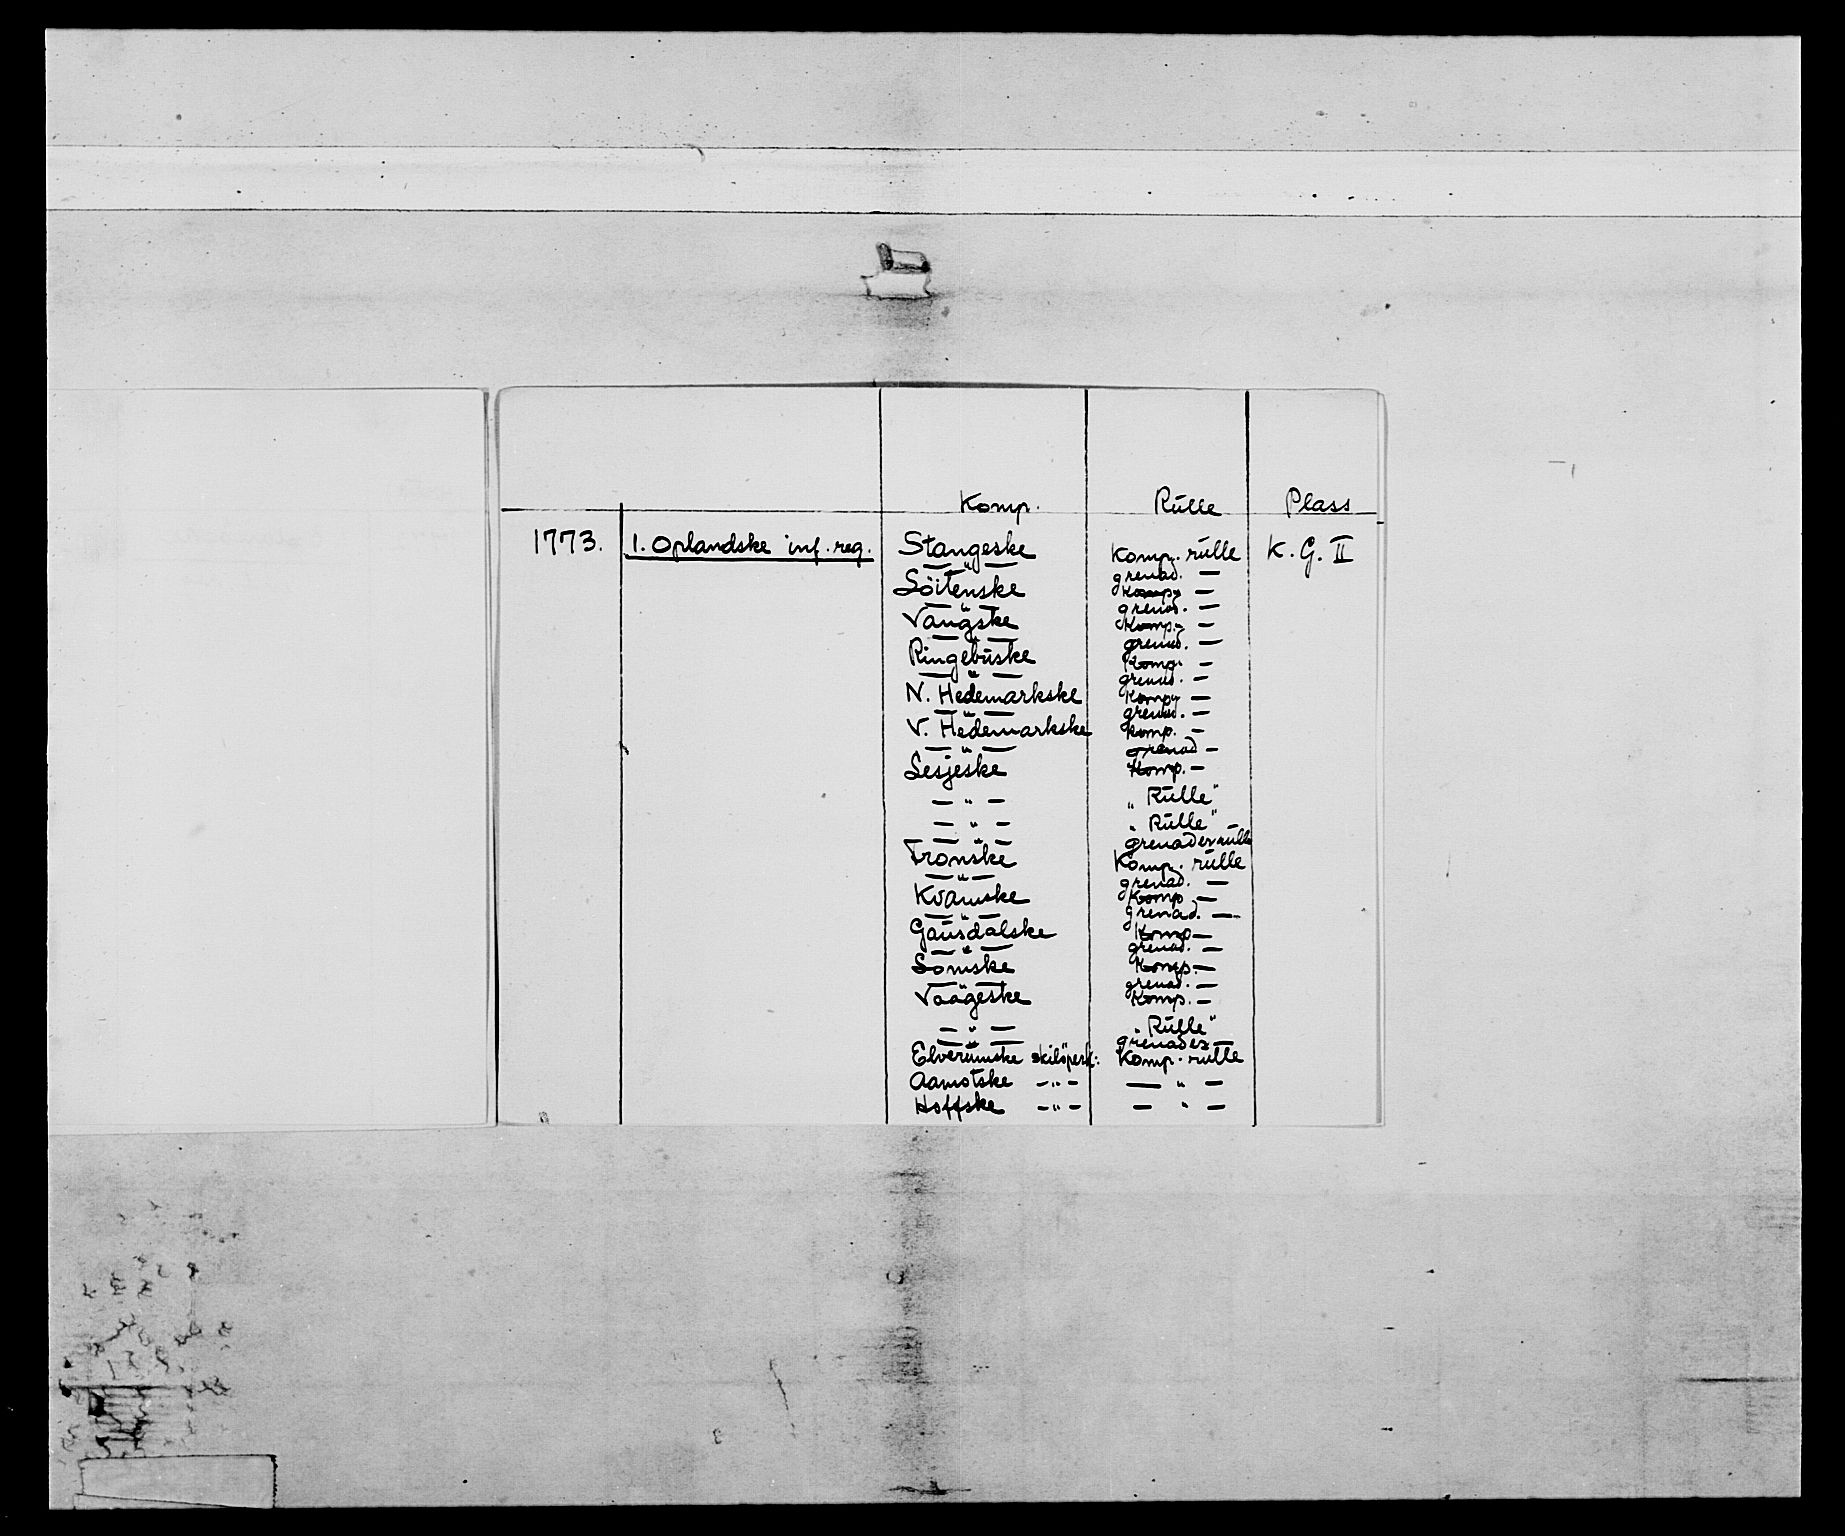 Komp. Rulle Plass
1773. 1. Oplandske inf. reg. Stangeske Komp. rulle K. G. II
— " — grenad. —
Löitenske Komp. —
— " — grenad. —
Vangske Komp. —
— " — grenad. —
Ringebuske Komp. —
— " — grenad. —
N. Hedemarkske Komp. —
— " — grenad. —
V. Hedemarkske Komp. —
— " — Grenad —
Lesjeske Komp. —
— " — "Rulle"
— " — "Rulle"
— " — grenaderrulle
Fronske Komp. rulle
— " — grenad. —
Kvamske Komp —
— " — grenad. —
Gausdalske Komp —
— " — grenad. —
Lomske Komp. —
— " — grenad. —
Vaageske Komp. —
— " — "Rulle"
— " — grenader —
Elverumske skilöperk: Komp. rulle
Aamotske — " — — " —
Hoffske — " — — " —